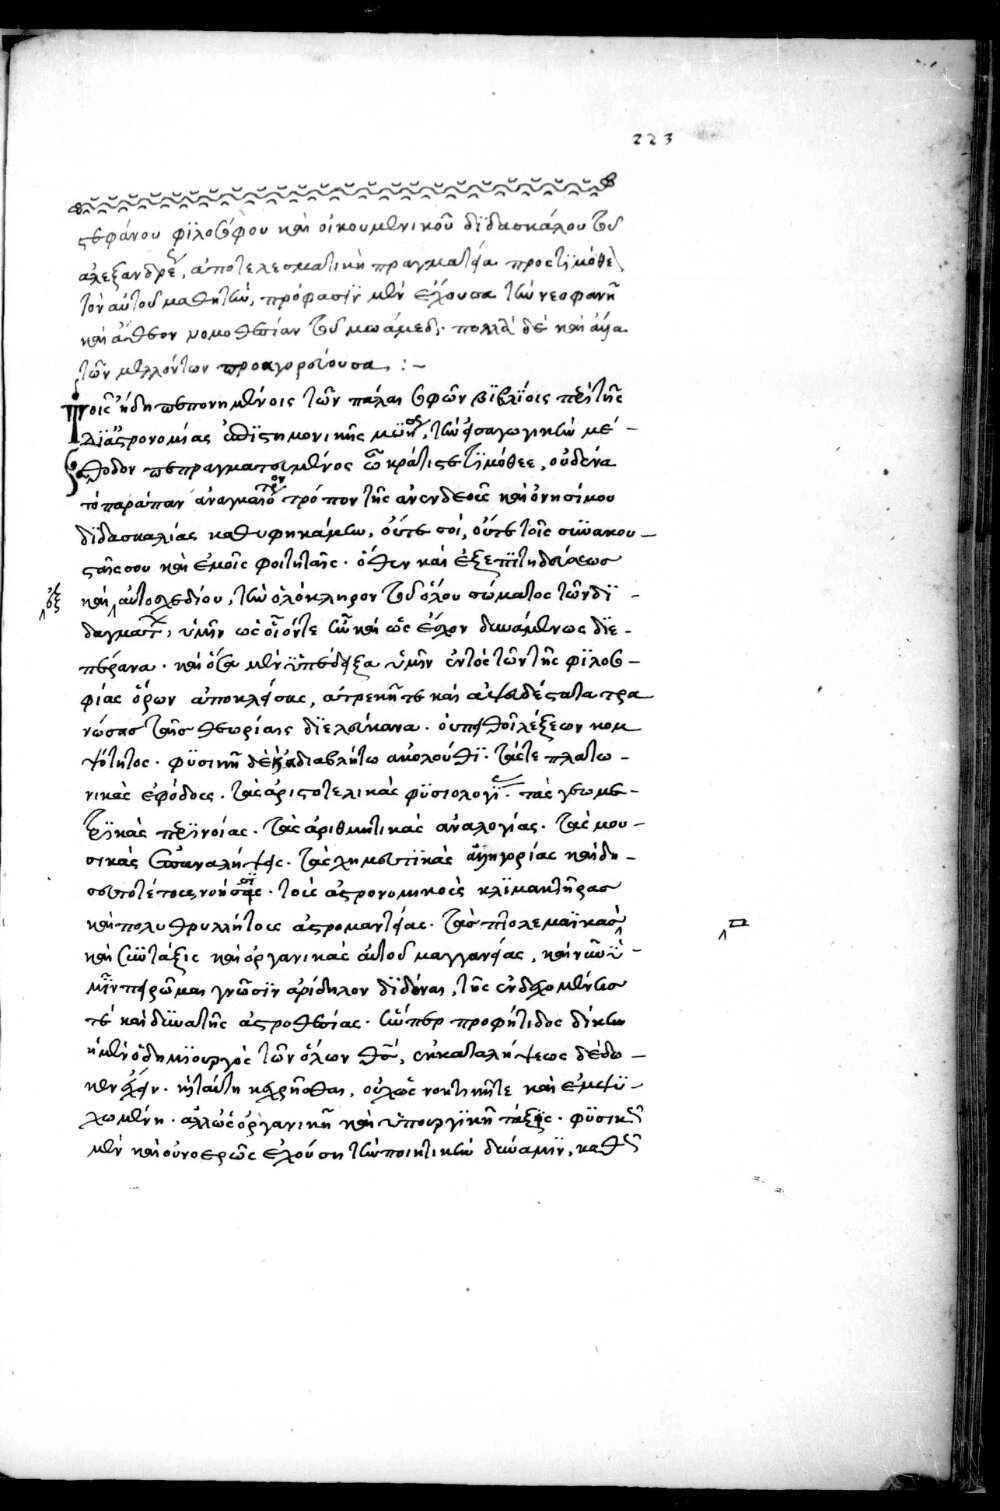 223
στεφάνου φϊλοσόφου καὶ οἰκουμενικοῦ δϊδασκάλου τοῦ
ἀλεξανδρέ, ἀποτελεσματικὴ πραγματεία πρὸς τϊμόθε
τὸν αὐτοῦ μαθητὴν, πρόφασϊν μὲν ἔχουσα τὴν νεοφανῆ
καὶ ἄθεον νομοθεσίαν τοῦ μωάμεδ· πολλὰ δὲ καὶ ἄλλα
τῶν μελλόντων προαγορεύουσα :-
Τοῖς ἤδη πεπονημένοις τῶν πάλαι σοφῶν βϊβλϊοις περὶ τῆς
δϊαστρονομίας ἐπϊστημονικῆς τὴν εἰσαγωγικὴν μέ-
θοδον πεπραγματευμένος ὦ κράτιστε τϊμόθεε, οὐδένα
τὸ παράπαν ἀναγκαιότερον τρόπον τῆς ἀνενδεοῦς καὶ ὀνησίμου
δϊδασκαλίας καθυφηκάμην, οὔτε σοί, οὔτε τοῖς συνακου-
σταῖς σου καὶ ἐμοῖς φοιτηταῖς· ὅθεν καὶ ἐξεπϊτηδεύσεως
καὶ αὐτοσχεδίου, τὴν ὁλόκληρον τοῦ ὅλου σώματος τῶν δϊ-
ἐξ
δαγμάτ, ὑμῖν ὡς οἷόντε ἦν καὶ ὡς εἶχον δυνάμεως δϊε-
πέρανα· καὶ ὅσα μὲν ὑπέδειξα ὑμῖν ἐντὸς τῶν τῆς φϊλοσο-
φίας ὅρων ἀποκλείσας, ἀτρεκῆ τε καὶ ἀψευδέστατα τρα
νώσας ταῖς θεωρίαις δϊελεύκανα· οὐ πειθοῖ λέξεων κομ
ψότητος· φϋσικῆ δὲ καὶ ἀδιαβλήτω ἀκολουθϊ· τάς τε πλατω-
νικὰς ἐφόδους· τὰς ἀριστοτελικὰς φϋσιολογϊ· τὰς γεωμε-
τρϊκὰς περϊνοίας· τὰς ἀριθμητικὰς ἀναλογίας· τὰς μου-
σικὰς ἐπαναλήψεις· τὰς χημευτϊκὰς ἀλληγορίας καὶ δυ-
σευτοτέτους νοήσεις· τοὺς ἀστρονομικοὺς κλϊμακτῆρας
καὶ πολυθρυλλήτους ἀστρομαντείας· τὰς πτολεμαϊκὰς
καὶ συντάξεις καὶ ὀργανικὰς αὐτοῦ μαγγανείας, καὶ νῦν ὑ-
μῖν πειρῶμαι γνῶσϊν ἀρίδηλον δϊδόναι, τῆς ἐνδεχομένης
τε καὶ δϋνατῆς ἀστροθεσίας· ὥσπερ προφήτιδος δίκην
ἡμῖν ὁ δημϊουργὸς τῶν ὅλων θεὸς, ἐν καταλήψεως δέδω-
κεν ἔχειν· καὶ ταύτη κεχρῆσθαι, οὐχ ὡς νοητικῆ τε καὶ ἐμψϋ-
χωμένη· ἀλλ' ὡς ὀργανικῆ καὶ ὑπουργϊκῆ τάξεις· φϋσικ
μὲν καὶ οὐ νοερῶς ἐχούση τὴν ποιητικὴν δύναμϊν, καθ